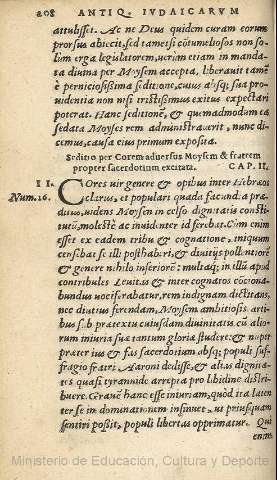 208 ANTIQ. IVDAICARVM
attulisset. Ac ne Deus quidem curam eorum
prorsus abiecit, sed tametsi cōtumeliosos non so-
lùm erga legislatorem, verùm etiam in manda-
ta diuina per Moysem accepta, liberauit tamē
è perniciosissima seditione, cuius absq; sua pro-
uidentia non nisi tristissimus exitus expectari
poterat. Hanc seditionē, & quemadmodum ea
sedata Moyses rem administrauerit, nunc di-
cemus, causa eius primum exposita.
Seditio per Corem aduersus Moysem & fratrem
propter sacerdotium excitata. CAP. II.
II. CORES vir genere & opibus inter Hebræos
Num.16. clarus, et populari quadā facundia præ-
ditus, videns Moysen in celso dignitatis consti-
tutū, molestè ac inuidenter id ferebat. Cùm enim
esset ex eadem tribu & cognatione, iniquum
censebat se illi posthaberi, & diuitijs pollentiorē
& genere nihilo inferiorē: multaq; in illū apud
contribules Leuitas & inter cognatos cōciona-
bundus vociferabatur, rem indignam dictitans,
nec diutius ferendam, Moysem ambitiosis arti-
bus sub prætextu cuiusdam diuinitatis cū alio-
rum iniuria sua tantum gloria studere: & nuper
præter ius & fas sacerdotium absq; populi suf-
fragio fratri Aaroni dedisse, & alias dignita-
tes quasi tyrannide arrepta pro libidine distri-
buere. Grauē hanc esse iniuriam, quòd ita laten
ter se in dominationem insinuet, vt priusquam
sentiri possit, populi libertas opprimatur. Qui
enim
Ministerio de Educación, Cultura y Deporte